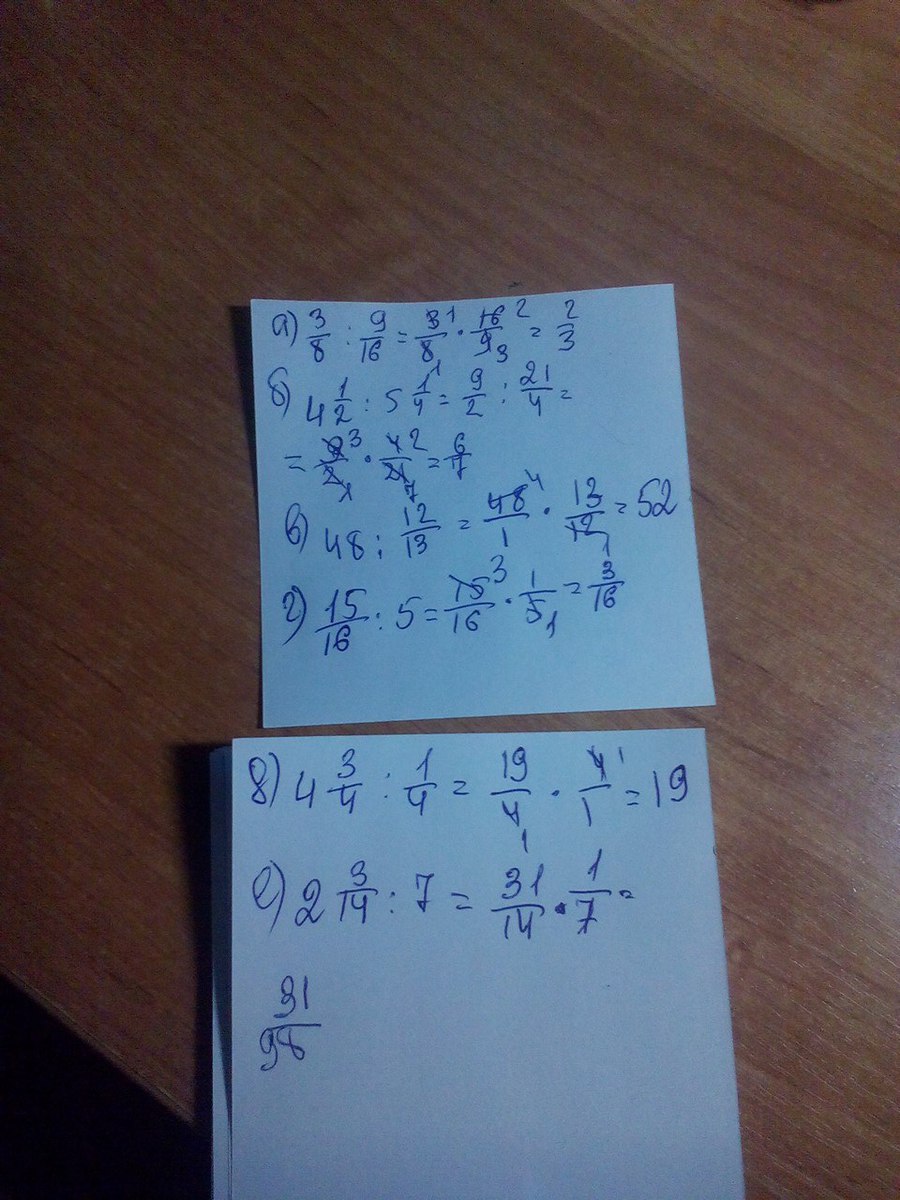 а) 3/8 : 9/16 = 3¹/8 · 16²/9₃ = 2/3
б) 4 1/2 : 5 1/4 = 9/2 : 21/4 =
= 9³/2₁ · 4²/21₇ = 6/7
в) 48 : 12/13 = 48⁴/1 · 13/12₁ = 52
г) 15/16 : 5 = 15³/16 · 1/5₁ = 3/16
д) 4 3/4 : 1/4 = 19/4₁ · 4¹/1 = 19
е) 2 3/14 : 7 = 31/14 · 1/7 =
31/98